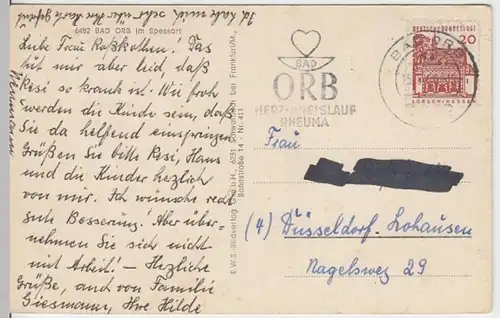 Ich habe mich sehr über Ihre Karte gefreut
6482 BAD ORB im Spessart
Liebe Frau Roßkothen! Das
tut mir aber leid, daß
Resi so krank ist. Wie froh
werden die Kinder sein, daß
Sie da helfend einspringen.
Grüßen Sie bitte Resi, Hans
und die Kinder herzlich
von mir. Ich wünsche recht
gute Besserung! Aber über-
nehmen Sie sich nicht
mit Arbeit! – Herzliche
Grüße, auch von Familie
Giesmann, Ihre Hilde
E.W.S.-Bildverlag G.m.b.H., 6231 Schwalbach bei Frankfurt/M.,
Bahnstraße 14 · Nr. 411
BAD
ORB
HERZ-KREISLAUF
RHEUMA
DEUTSCHE BUNDESPOST
20
LORSCH/HESSEN
BAD ORB
Frau
(4) Düsseldorf-Lohausen
Nagelsweg 29